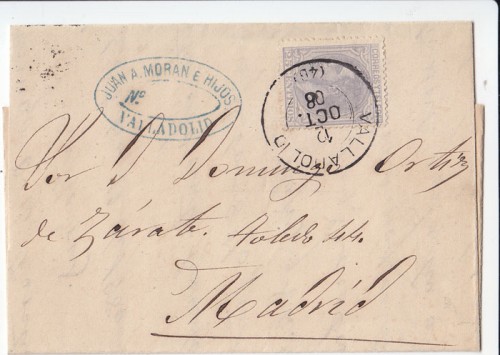 JUAN A. MORAN E HIJOS
Nº
VALLADOLID
VALLADOLID
12
OCT.
80
(46)
Sor D. Domingo Ortiz
de Zárate. Toledo 44.
Madrid